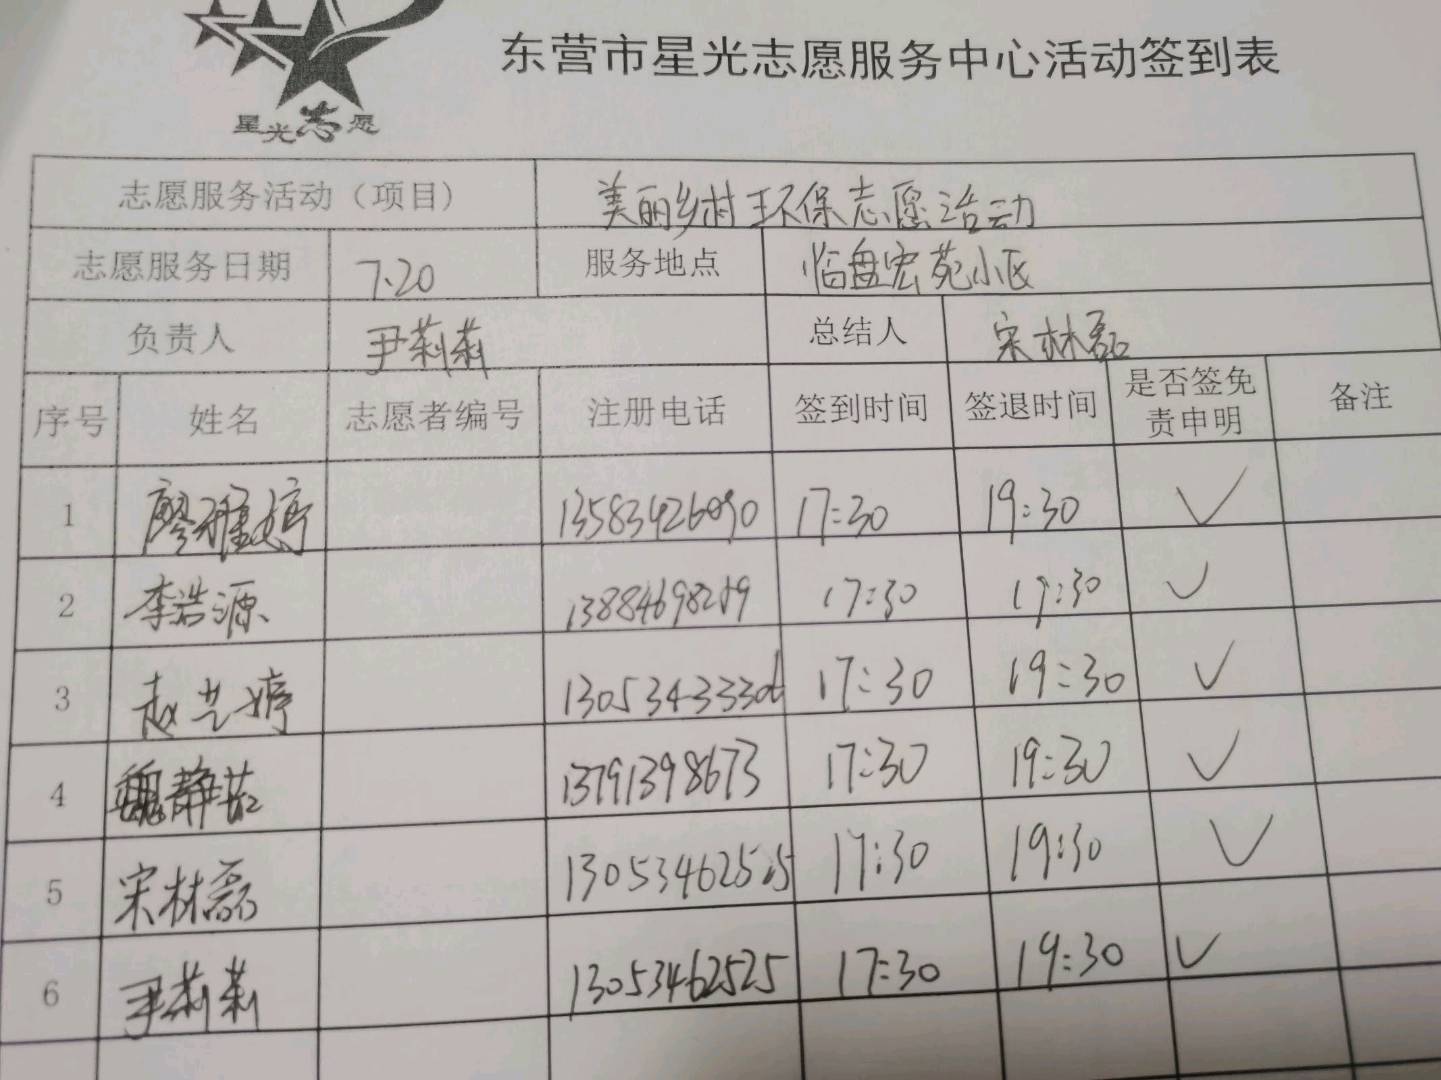 东营市星光志愿服务中心活动签到表
星光志愿
志愿服务活动（项目） 美丽乡村环保志愿活动
志愿服务日期 7.20 服务地点 临盘宏苑小区
负责人 尹莉莉 总结人 宋林磊
序号 姓名 志愿者编号 注册电话 签到时间 签退时间 是否签免责申明 备注
1 廖雅婷 17:30 19:30 ✓
2 李浩源 17:30 19:30 ✓
3 赵艺婷 17:30 19:30 ✓
4 魏静茹 13791398673 17:30 19:30 ✓
5 宋林磊 13053462525 17:30 19:30 ✓
6 尹莉莉 13053462525 17:30 19:30 ✓